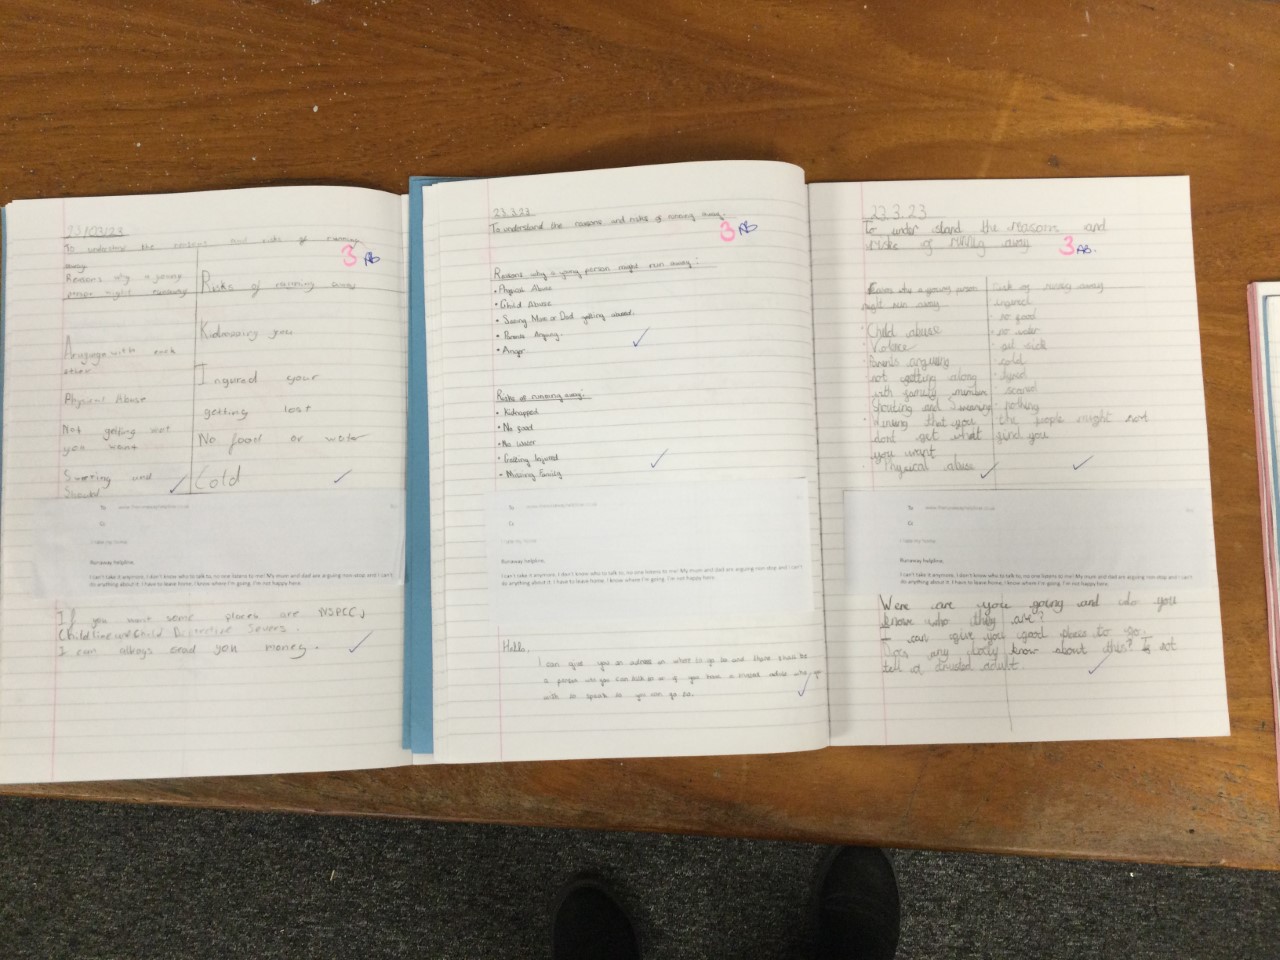 23/03/23
To understand the reasons and risks of running
away.
3 Ab
Reasons why a young
person might runaway
Risks of running away
Arguging with each
other
Kidnapping you
Physical Abuse
Ingured your
Not getting wot
you want
getting lost
No food or water
Swering and
Shouting
Cold
To www.therunawayhelpline.co.uk
Cc
I hate my home
Runaway helpline,
I can't take it anymore, I don't know who to talk to, no one listens to me! My mum and dad are arguing non stop and I can't
do anything about it. I have to leave home, I know where I'm going. I'm not happy here.
If you want some places are NSPCC,
Childline and Child
I can always send you money.
23.3.23
To understand the reasons and risks of running away.
3 Ab
Reasons why a young person might run away:
• Physical Abuse
• Child Abuse
• Seeing Mum or Dad getting abused.
• Parents Arguing.
• Anger
Risks of running away:
• Kidnapped
• No food
• No water
• Getting Injured
• Missing Family
To www.therunawayhelpline.co.uk
Cc
I hate my home
Runaway helpline,
I can't take it anymore, I don't know who to talk to, no one listens to me! My mum and dad are arguing non stop and I can't
do anything about it. I have to leave home, I know where I'm going. I'm not happy here.
Hello,
I can give you an adress on where to go to and there should be
a person who you can talk to or if you have a trusted adult who you
with to speak to you can go to.
23.3.23
To under stand the reasons and
riske of runing away
3 Ab.
Reasons why a young person
might run away
risk of runing away
· ingured
· no food
· Child abuse
· no water
· Violece
· get sick
· Parents arguing
· cold
· not getting along
with family member
· scared
· Shouting and Swearing
· nothing
· Wining that you
dont get what
you want
· the people might not
find you
· Physical abuse
To www.therunawayhelpline.co.uk
Cc
I hate my home
Runaway helpline,
I can't take it anymore, I don't know who to talk to, no one listens to me! My mum and dad are arguing non stop and I can't
do anything about it. I have to leave home, I know where I'm going. I'm not happy here.
Were are you going and do you
know who they are?
I can give you good places to go.
Does any body know about this? If not
tell a trusted adult.